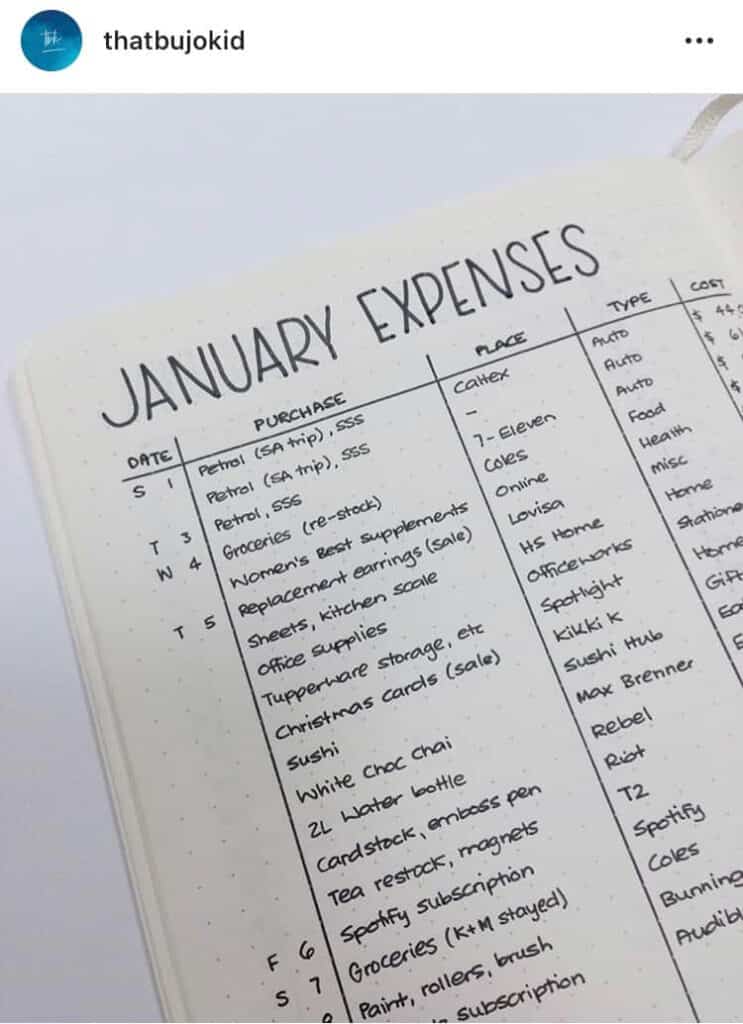 thatbujokid
tbk
JANUARY EXPENSES
DATE PURCHASE PLACE TYPE COST
S 1 Petrol (SA trip), SSS Caltex Auto $ 44
Petrol (SA trip), SSS - Auto $ 6
T 3 Petrol, SSS 7-Eleven Auto $
W 4 Groceries (re-stock) Coles Food $
Women's Best supplements Online Health
T 5 Replacement earrings (sale) Lovisa Misc
Sheets, kitchen scale HS Home Home
Office supplies Officeworks Statione
Tupperware storage, etc Spotlight Home
Christmas cards (sale) Kikki K Gift
Sushi Sushi Hub
White Choc Chai Max Brenner
2L Water bottle Rebel
Cardstock, emboss pen Riot
Tea restock, magnets T2
F 6 Spotify subscription Spotify
S 7 Groceries (K+M stayed) Coles
Paint, rollers, brush Bunning
subscription Audibl